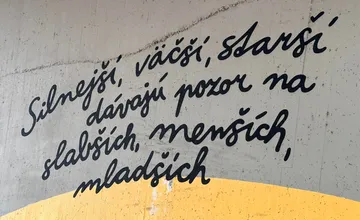 Silnejší, väčší, starší
dávajú pozor na
slabších, menších,
mladších